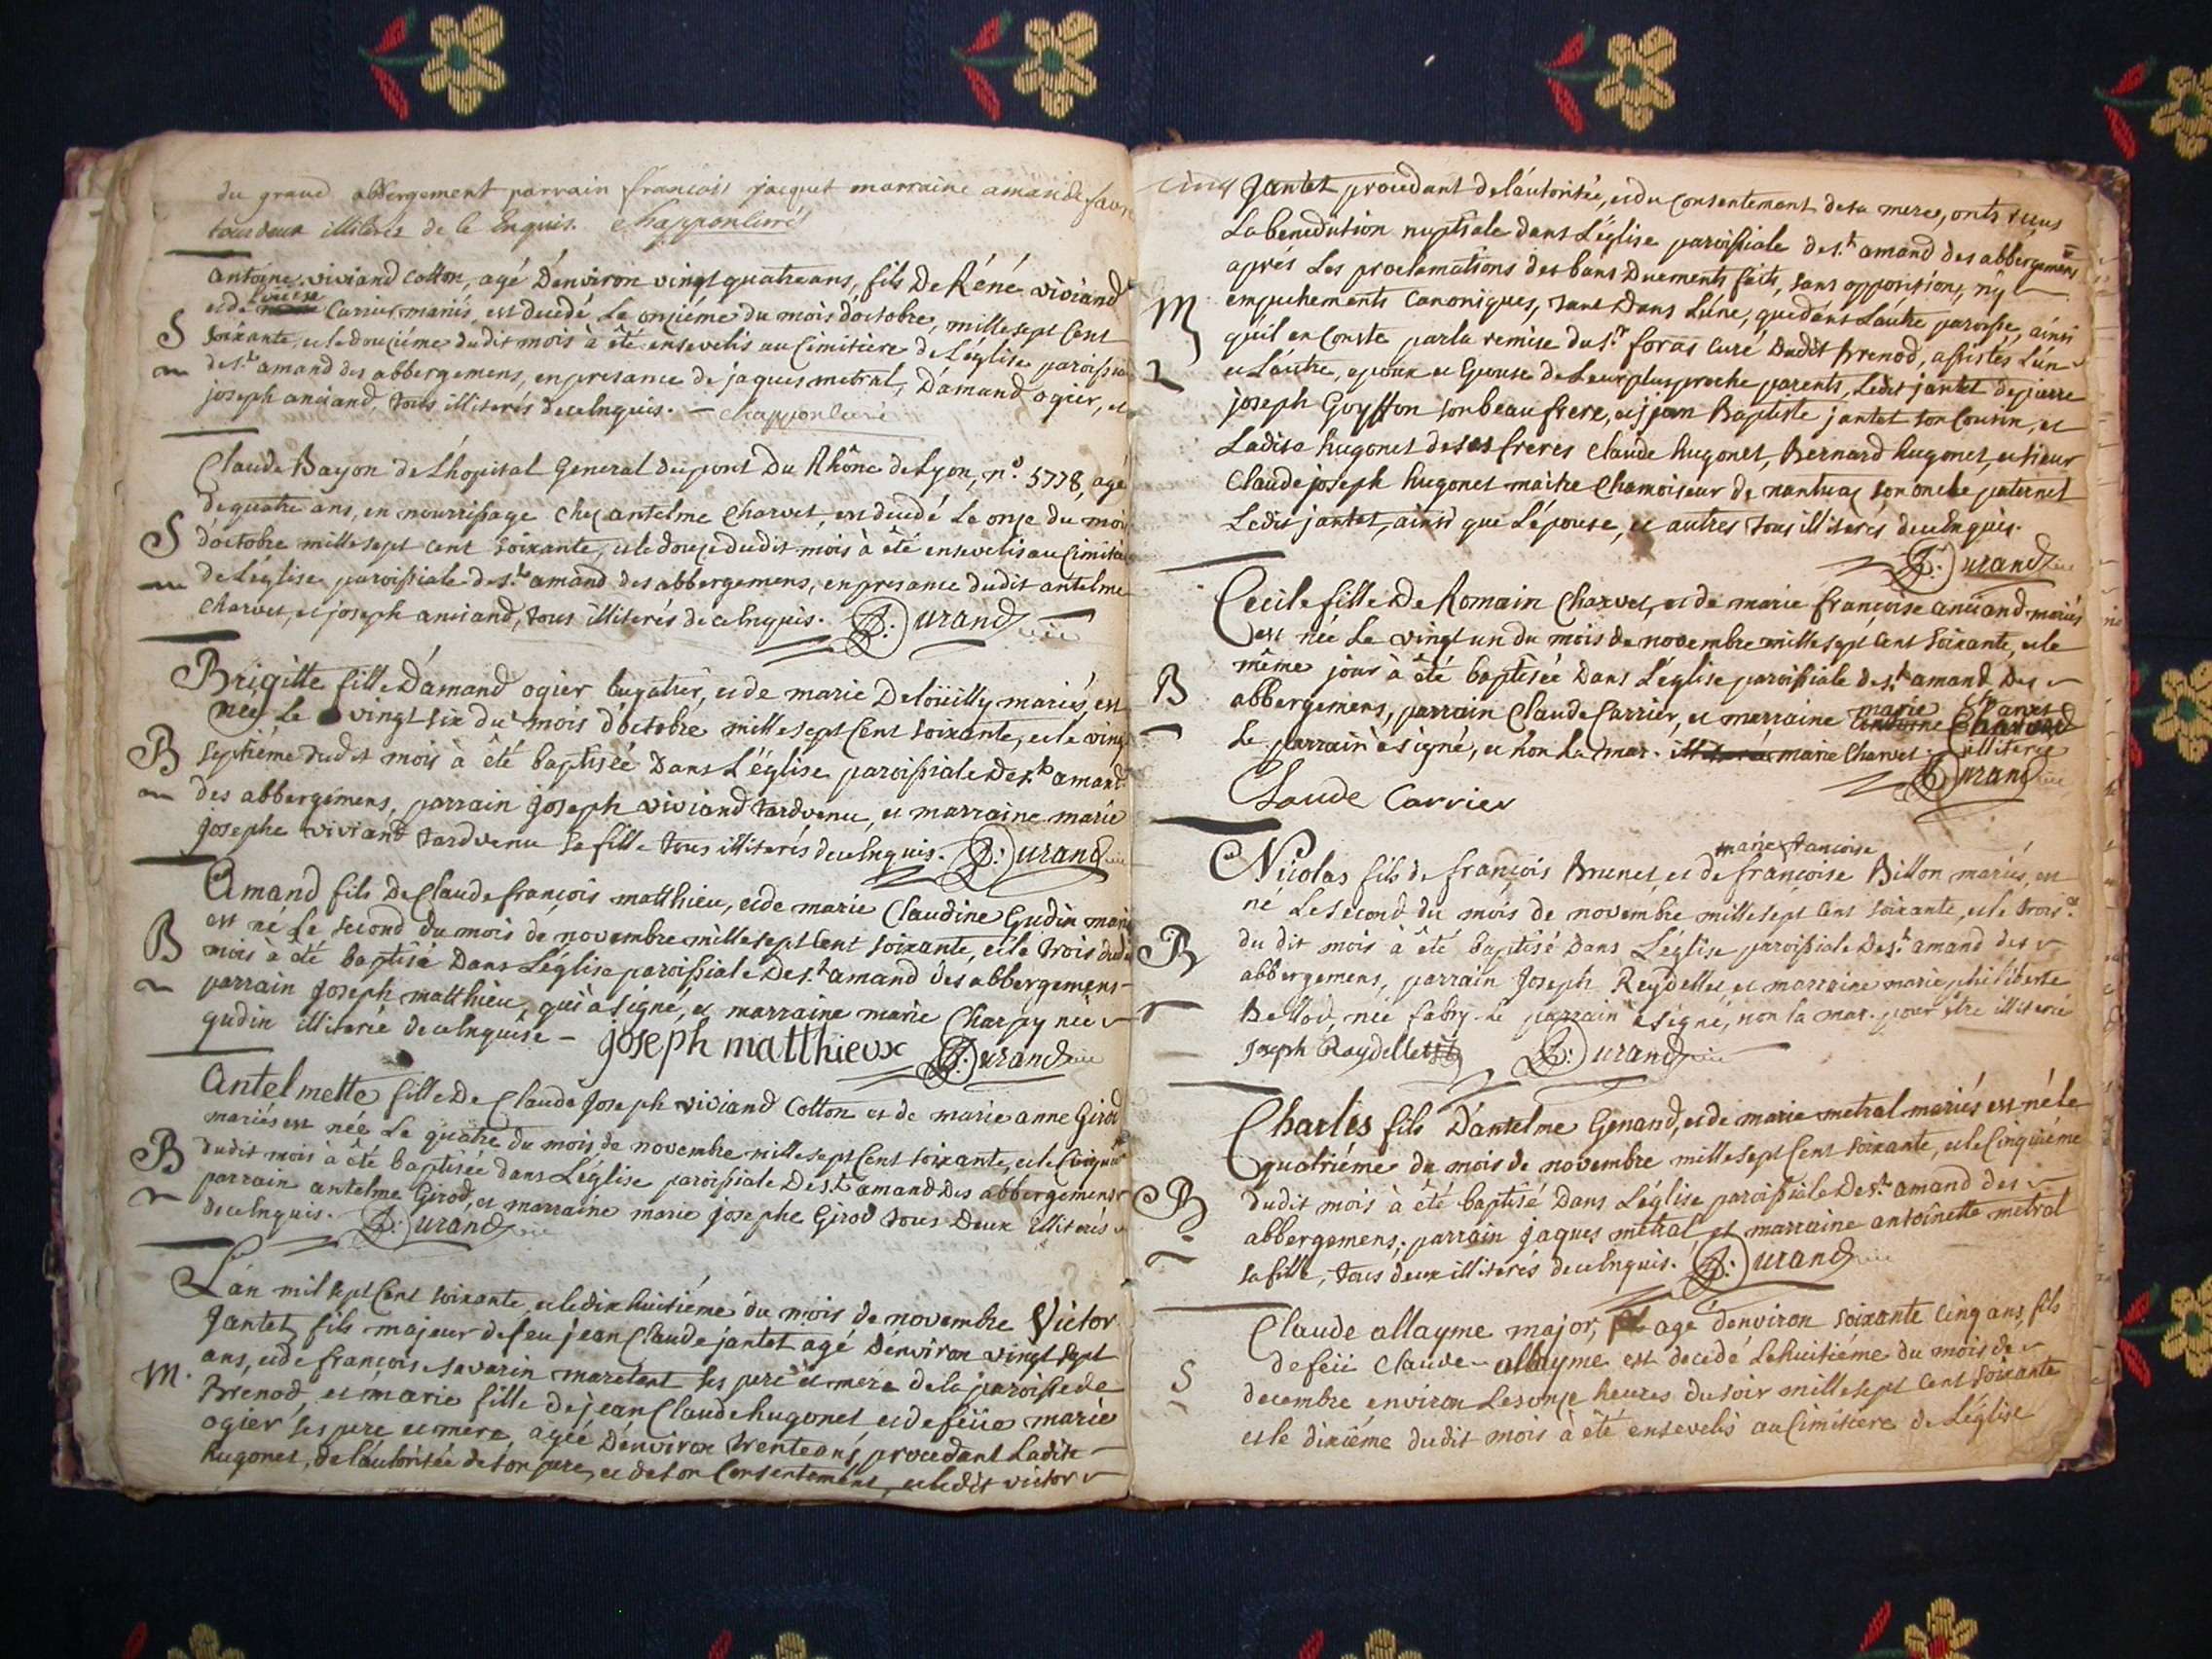 du grand abbergement parrain francois jacquet marraine amande
tous deux illiteres de ce Enquis. Chapponlivré
antoine viviand Cotton, agé D'environ vingt quatre ans, fils De Réné viviand
et de Carrier mariés, est decedé Le onziéme du mois d'octobre, mille sept Cent
S
soixante, et le douziéme dudit mois à été ensevelis au Cimitière de L'église paroissia
de st amand des abbergemens, en presance de jaques metral, D'amand ogier, et
joseph anciand, tous illiterés de ce Enquis. - Chapponlivré
Claude Bayon de L'hopital General du pont Du Rhône de Lyon, n.° 5778, agé
de quatre ans, en nourrissage chez antelme Charvet, est decedé Le onze du mois
S
d'octobre mille sept cent soixante, et le douze dudit mois à été ensevelis au Cimitie
de L'église paroissiale de st amand des abbergemens, en presance dudit antelme
Charvet, et joseph anciand, tous illiterés de ce Enquis. D: Durand
Brigitte fille D'amand ogier et de marie Deloüilly mariés, est
née Le vingt six du mois d'octobre mille sept Cent soixante, et le vingt
B
septiéme dudit mois à été baptisée Dans L'église paroissiale De st amand
des abbergemens, parrain joseph viviand tardvenu, et marraine marie
josephe viviand tardvenu sa fille tous illiterés de ce Enquis. D: Durand
Amand fils De Claude françois matthieu, et de marie Claudine Gudin marié
est né Le second du mois de novembre mille sept Cent soixante, et le trois dud
B
mois à été baptisé Dans L'église paroissiale De st amand des abbergemens-
parrain joseph matthieu, qui à signé, et marraine marie Charpy née
gudin illiterée de ce Enquise - joseph matthieux D: Durand
Antelmette fille De Claude Joseph viviand Cotton et de marie anne Girod
mariés est née Le quatre du mois de novembre mille sept Cent soixante, et le Cinquié
B
dudit mois à été baptisée dans L'église paroissiale De st amand Des abbergemens
parrain antelme Girod, et marraine marie josephe Girod tous Deux illiterés
de ce Enquis. D: Durand
L'an mil sept Cent soixante, et le dix huitiéme du mois de novembre Victor
Jantet, fils majeur de feu jean Claude jantet agé D'environ vingt sept
M.
ans, et de françoise savarin maretent ses pere et mere de la paroisse de
Brénod, et marie fille de jean Claude hugonet et de feüe marie
ogier ses pere et mere agée D'environ trente ans, procedant Ladite
hugonet, de l'autorisée de son pere, et de son Consentement, et ledit victor
cinq
Jantet procedant de l'autorisée, et du Consentement de sa mere, onts reçus
La benediction nuptiale dans L'église paroissiale de st amand des abbergemens
aprés Les proclamations des bans Duements faits, sans opposition, ny
M
empechements Canoniques, tant Dans L'une, que dans L'autre paroisse, ainsi
qu'il en Conste par la remise du sr foras Curé Dudit Brenod, assistés L'un
2
et L'autre, epoux et Epouse de Leur plus proche parents, Ledit jantet de pierre
joseph Goyffon son beau frere, et jean Baptiste jantet son Cousin, et
Ladite hugonet de ses freres Claude hugonet, Bernard hugonet, et sieur
Claude joseph hugonet maitre Chamoiseur de nantuaz son oncle paternel
Ledit jantet, ainsi que L'épouse, et autres tous illiterés de ce Enquis.
D: Durand
Cecile fille De Romain Charvet, et de marie françoise anciand mariés
est née Le vingt un du mois de novembre mille sept Cent soixante, et le
même jour à été baptisée Dans L'église paroissiale de st amand Des
B
abbergemens, parrain Claude Carrier, et marraine marie Charvet
Le parrain à signé, et non La mar. marie Charvet illiterée
D: Durand
Claude Carrier
marie francoise
Nicolas fils de françois Brunet, et de françoise Billon mariés, est
né Le second du mois de novembre mille sept Cent soixante, et le trois
B
du dit mois à été baptisé dans L'église paroissiale De st amand des
abbergemens, parrain Joseph Reydellet et marraine marie philiberte
Bellod, née fabry. Le parrain à signé, non la mar. pour être illiterée
Joseph Raydellet D: Durand
Charles fils D'antelme Genand, et de marie metral mariés est né le
quatriéme du mois de novembre mille sept Cent soixante, et le Cinquiéme
B
dudit mois à été baptisé Dans L'église paroissiale De st amand des
abbergemens; parrain jaques metral, et marraine antoinette metral
sa fille, tous deux illiterés de ce Enquis. D: Durand
Claude allayme major, agé d'environ soixante Cinq ans, fils
de feü Claude allayme est decedé Le huitiéme du mois de
S
decembre environ Les onze heures du soir mille sept Cent soixante
et le dixiéme dudit mois à été ensevelis au Cimitiere de L'église